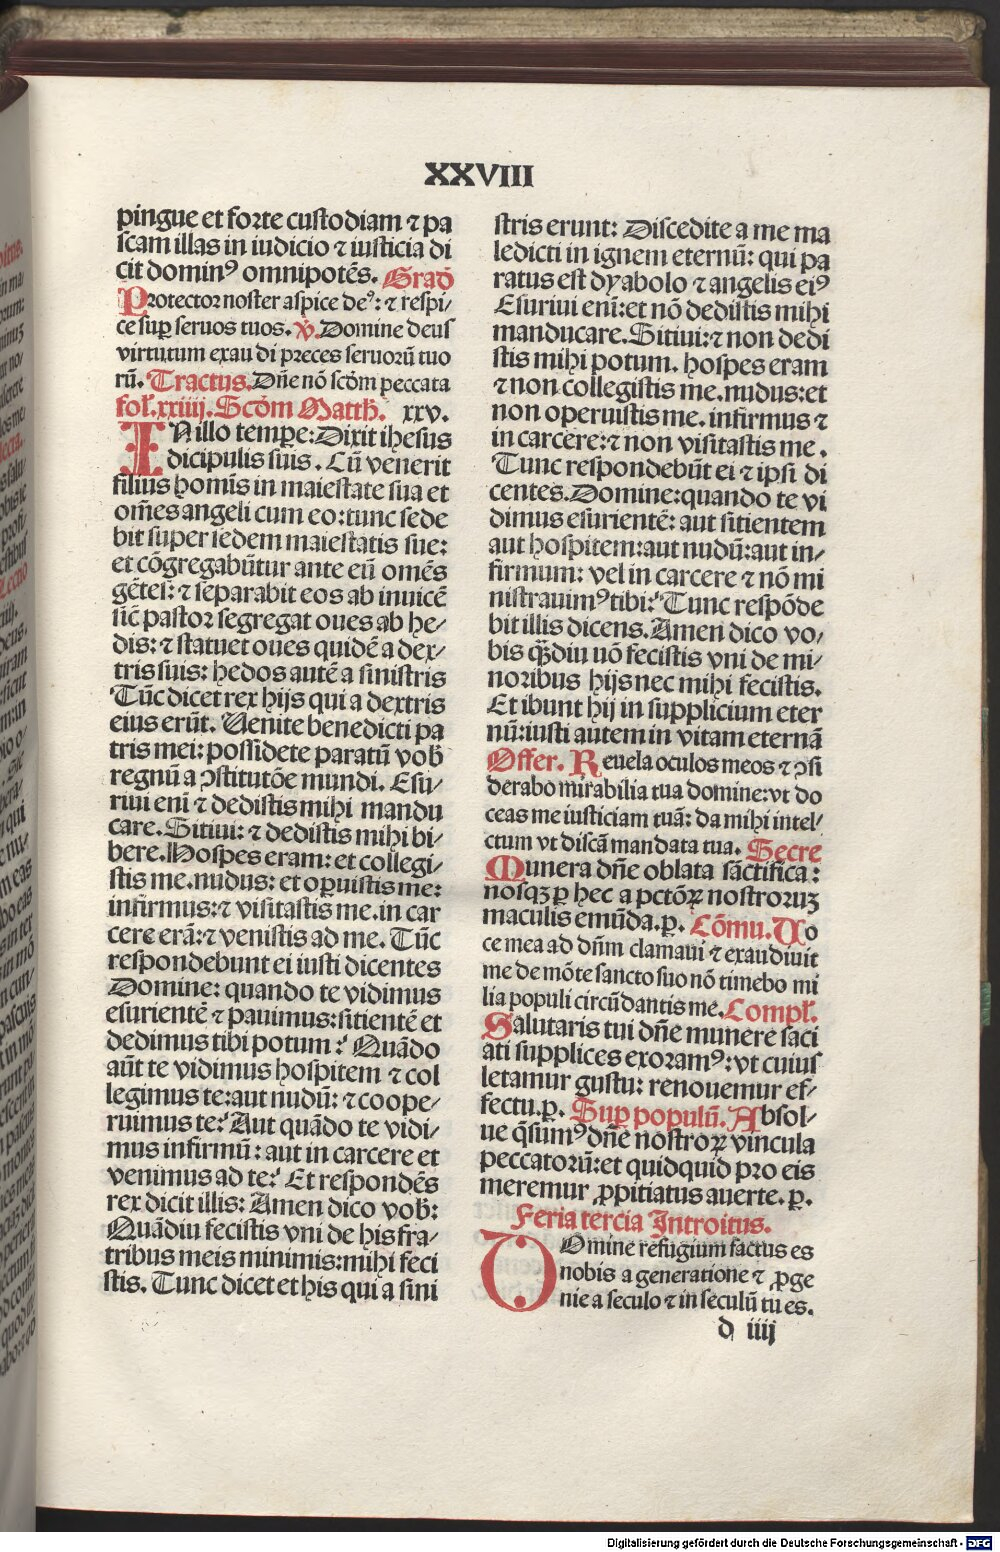 XXVIII
pingue et forte custodiam ⁊ pa
scam illas in iudicio ⁊ iusticia di
cit dominꝰ omnipotēs. Grad̄
Protector noster aspice deꝰ: ⁊ respi⸗
ce suꝑ seruos tuos. ℣. Domine deus
virtutum exaudi preces seruorū tuo
rū. Tractus. Dn̄e nō scd̄m peccata
fol. xxiiij. Scd̄m Matth̄. xxv.
IN illo tempe: Dixit ihesus
dicipulis suis. Cū venerit
filius homīs in maiestate sua et
om̄es angeli cum eo: tunc sede
bit super sedem maiestatis sue:
et cōgregabūtur ante eū omēs
gētes: ⁊ separabit eos ab inuicē
sic̄ pastor segregat oues ab he⸗
dis: ⁊ statuet oues quidē a dex⸗
tris suis: hedos autē a sinistris
Tūc dicet rex hijs qui a dextris
eius erūt. Venite benedicti pa
tris mei: possidete paratū vob̄
regnū a ꝯstitutōe mundi. Esu⸗
riui eni ⁊ dedistis mihi mandu
care. Sitiui: ⁊ dedistis mihi bi⸗
bere. Hospes eram: et collegi⸗
stis me. nudus: et oꝑuistis me:
infirmus: ⁊ visitastis me. in car
cere erā: ⁊ venistis ad me. Tūc
respondebunt ei iusti dicentes
Domine: quando te vidimus
esurientē ⁊ pauimus: sitientē et
dedimus tibi potum? Quādo
aūt te vidimus hospitem ⁊ col
legimus te: aut nudū: ⁊ coope⸗
ruimus te? Aut quādo te vidi⸗
mus infirmū: aut in carcere et
venimus ad te? Et respondēs
rex dicit illis: Amen dico vob̄:
Quādiu fecistis vni de his fra⸗
tribus meis minimis: mihi feci
stis. Tunc dicet et his qui a sini
stris erunt: Discedite a me ma
ledicti in ignem eternū: qui pa
ratus est dyabolo ⁊ angelis eiꝰ
Esuriui enī: et nō dedistis mihi
manducare. Sitiui: ⁊ non dedi
stis mihi potum. hospes eram
⁊ non collegistis me. nudus: et
non operuistis me. infirmus ⁊
in carcere: ⁊ non visitastis me.
Tunc respondebūt ei ⁊ ipsi di
centes. Domine: quando te vi
dimus esurientē: aut sitientem
aut hospitem: aut nudū: aut in⸗
firmum: vel in carcere ⁊ nō mi
nistrauimꝰ tibi? Tunc respōde
bit illis dicens. Amen dico vo⸗
bis qꝫdiu nō fecistis vni de mi⸗
noribus hijs nec mihi fecistis.
Et ibunt hij in supplicium eter
nū: iusti autem in vitam eternā
Offer. Reuela oculos meos ⁊ ꝯsi
derabo mirabilia tua domine: vt do
ceas me iusticiam tuā: da mihi intel⸗
lectum vt discā mandata tua. Secre
Munera dn̄e oblata sāctifica:
nosqꝫ ꝑ hec a pctōꝝ nostroruꝫ
maculis emūda. ꝑ. Cōmu. Vo
ce mea ad dn̄m clamaui ⁊ exaudiuit
me de mōte sancto suo nō timebo mi
lia populi circūdantis me. Compl.
Salutaris tui dn̄e munere saci
ati supplices exoramꝰ: vt cuius
letamur gustu: renouemur ef⸗
fectu. ꝑ. Suꝑ populū. Absol⸗
ue q̄sumꝰ dn̄e nostroꝝ vincula
peccatorū: et quidquid pro eis
meremur ꝓpitiatus auerte. ꝑ.
Feria tercia Introitus.
DOmine refugium factus es
nobis a generatione ⁊ ꝓge
nie a seculo ⁊ in seculū tu es.
d iiij
Digitalisierung gefördert durch die Deutsche Forschungsgemeinschaft - DFG